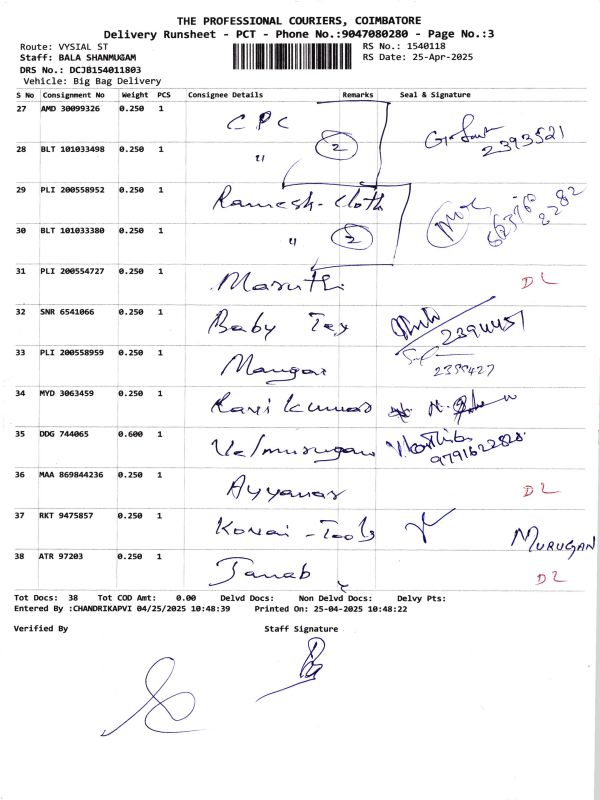 THE PROFESSIONAL COURIERS, COIMBATORE
Delivery Runsheet - PCT - Phone No.:9047080280 - Page No.:3
Route: VYSIAL ST RS No.: 1540118
Staff: BALA SHANMUGAM RS Date: 25-Apr-2025
DRS No.: DCJB154011803
Vehicle: Big Bag Delivery
S No Consignment No Weight PCS Consignee Details Remarks Seal & Signature
27 AMD 30099326 0.250 1 CPC
28 BLT 101033498 0.250 1 " 2 2393521
29 PLI 200558952 0.250 1 Ramesh-Cloth
30 BLT 101033380 0.250 1 " 2 8282
31 PLI 200554727 0.250 1 Maruthi DL
32 SNR 6541066 0.250 1 Baby Tex 2394457
33 PLI 200558959 0.250 1 Mangai
34 MYD 3063459 0.250 1 Ravi Kumar
35 DDG 744065 0.600 1 Velmurugan 9791622828
36 MAA 869844236 0.250 1 Ayyanar DL
37 RKT 9475857 0.250 1 Kovai - Tools MURUGAN
38 ATR 97203 0.250 1 Janab DL
Tot Docs: 38 Tot COD Amt: 0.00 Delvd Docs: Non Delvd Docs: Delvy Pts:
Entered By :CHANDRIKAPVI 04/25/2025 10:48:39 Printed On: 25-04-2025 10:48:22
Verified By Staff Signature